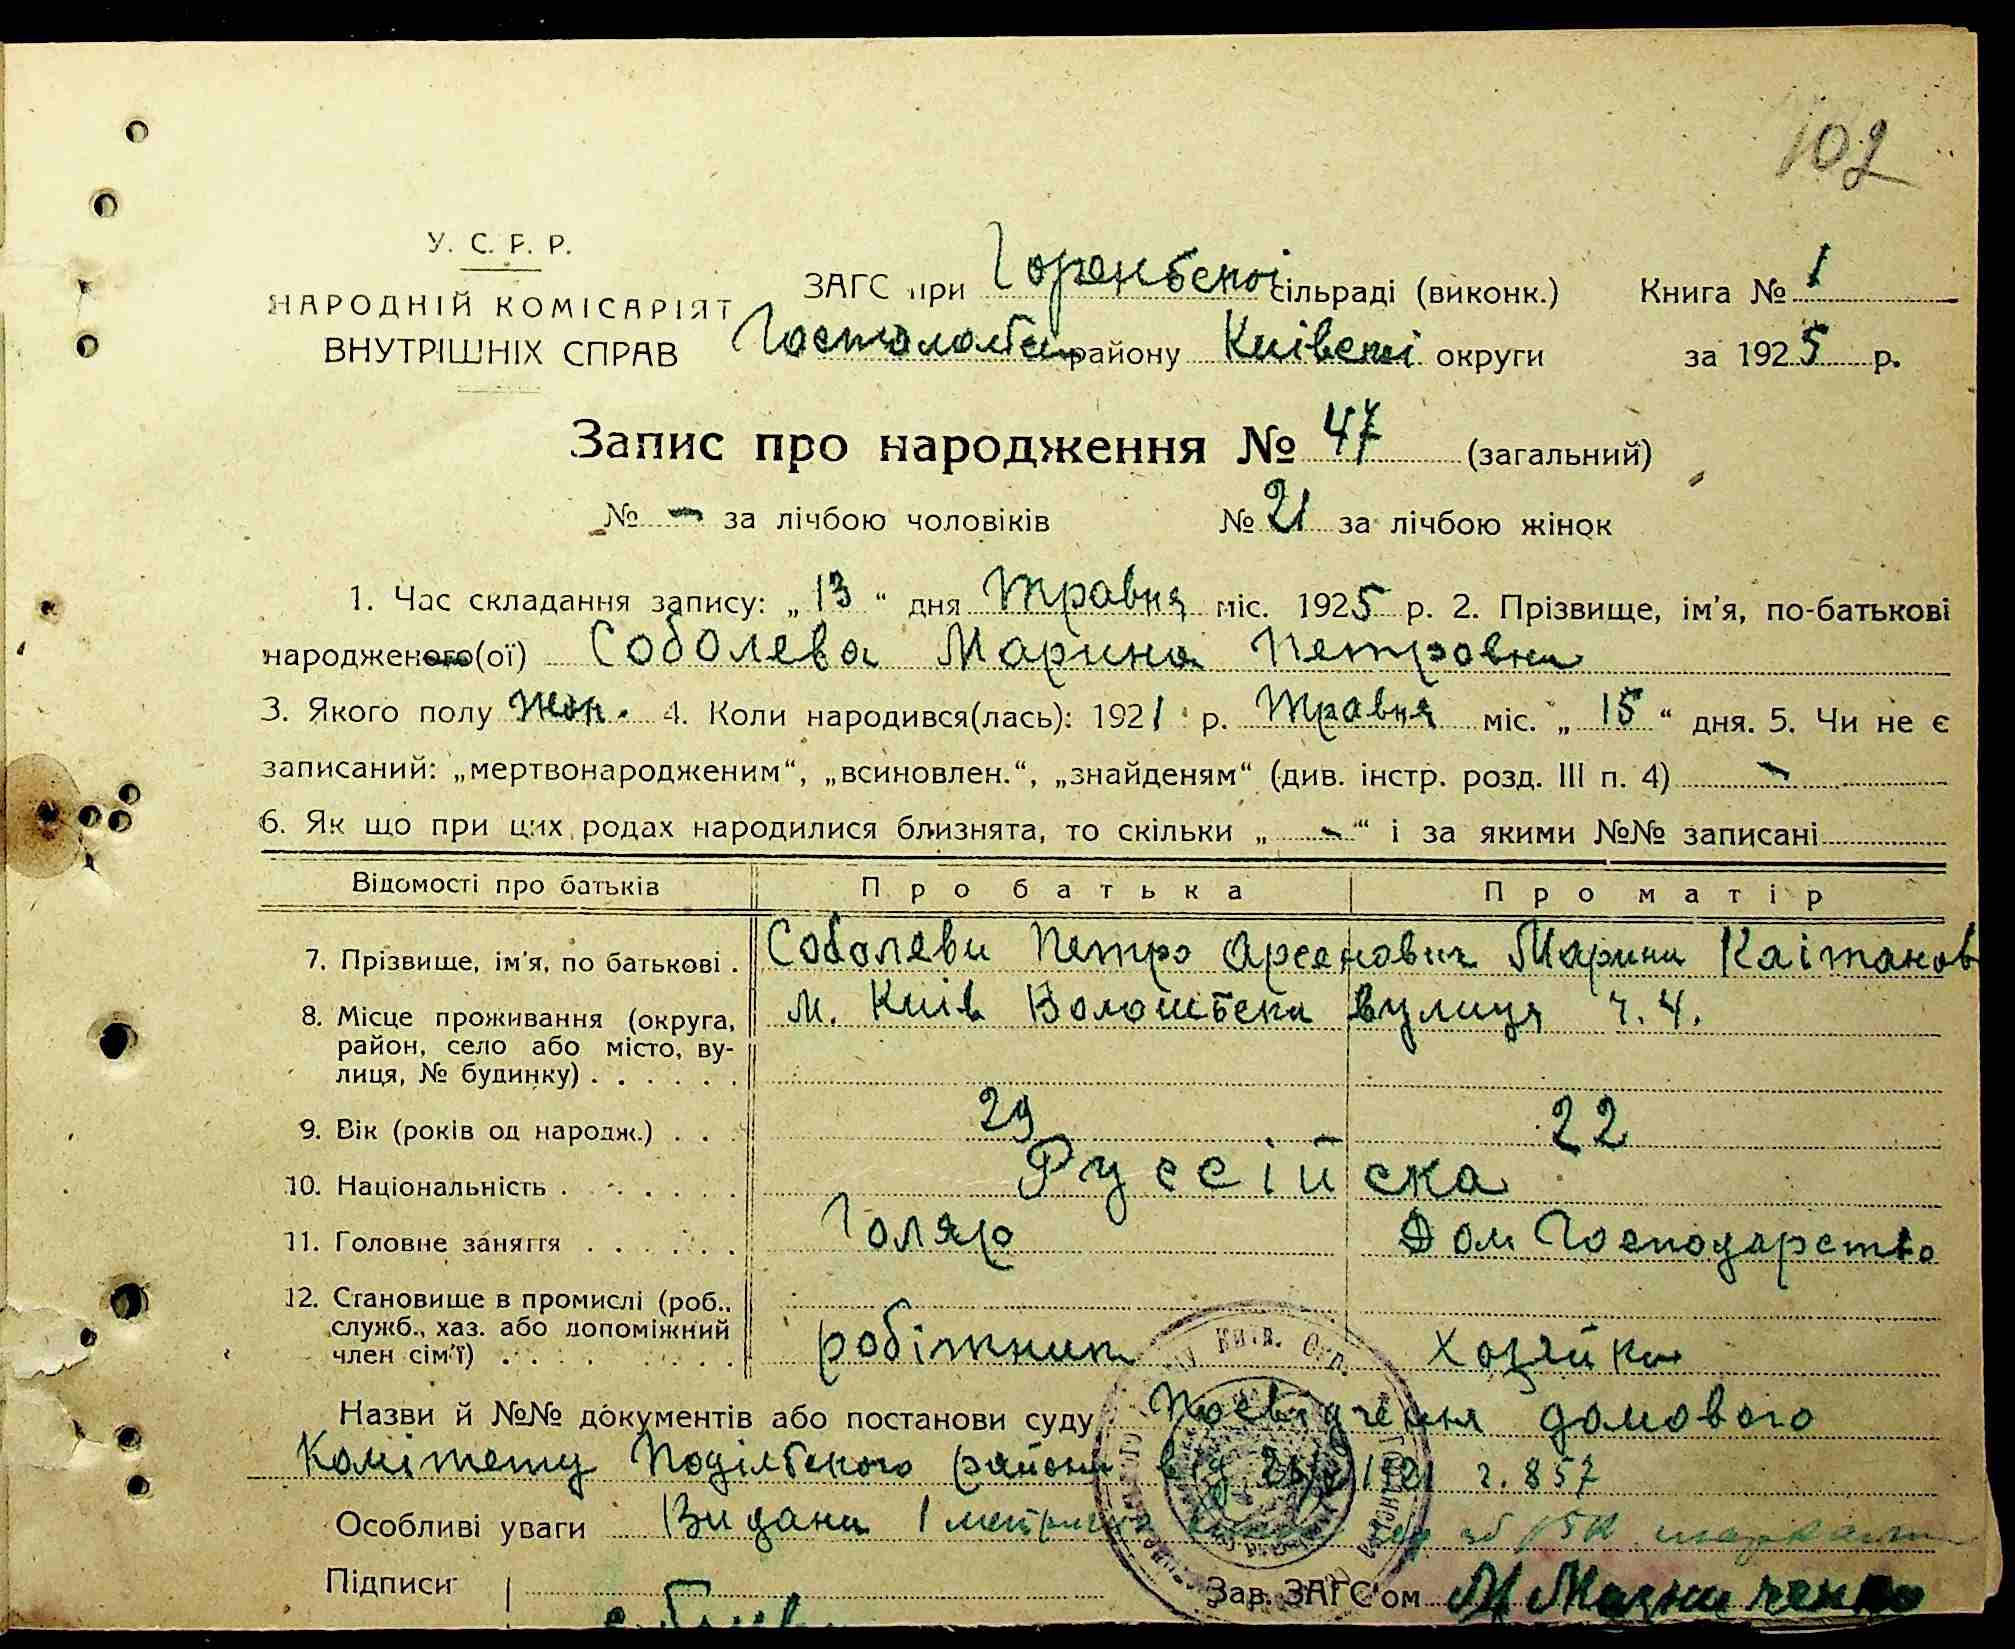 102
У. С. Р. Р.
НАРОДНІЙ КОМІСАРІЯТ
ВНУТРІШНІХ СПРАВ
ЗАГС при Горенській сільраді (виконк.) Книга № 1
Гостомельськ району Київської округи за 1925 р.
Запис про народження № 47 (загальний)
№ - за лічбою чоловіків № 21 за лічбою жінок
1. Час складання запису: „13“ дня Травня міс. 1925 р. 2. Прізвище, ім'я, по-батькові
народженого(ої) Соболева Марина Петровна
3. Якого полу жон. 4. Коли народився(лась): 1921 р. Травня міс. „15“ дня. 5. Чи не є
записаний: „мертвонародженим“, „всиновлен.“, „знайденям“ (див. інстр. розд. III п. 4) -
6. Як що при цих родах народилися близнята, то скільки „-“ і за якими №№ записані
Відомості про батьків Про батька Про матір
7. Прізвище, ім'я, по батькові . Соболеви Петро Арсенович Марина Каітанов
8. Місце проживання (округа, м. Київ Волошська вулиця ч. 4.
район, село або місто, ву-
лиця, № будинку) . . . . . .
9. Вік (років од народж.) . . . 29 22
10. Національність . . . . . . . Руссійска
11. Головне заняття . . . . . . Голяр Дом Господарство
12. Становище в промислі (роб.,
служб., хаз. або допоміжний
член сім'ї) . . . . . . . . . робітник хозяйка
Назви й №№ документів або постанови суду Посвідчення домового
Комітету Подільського району від 1921 ч. 857
Особливі уваги Видана 1
Підписи Зав. ЗАГС'ом